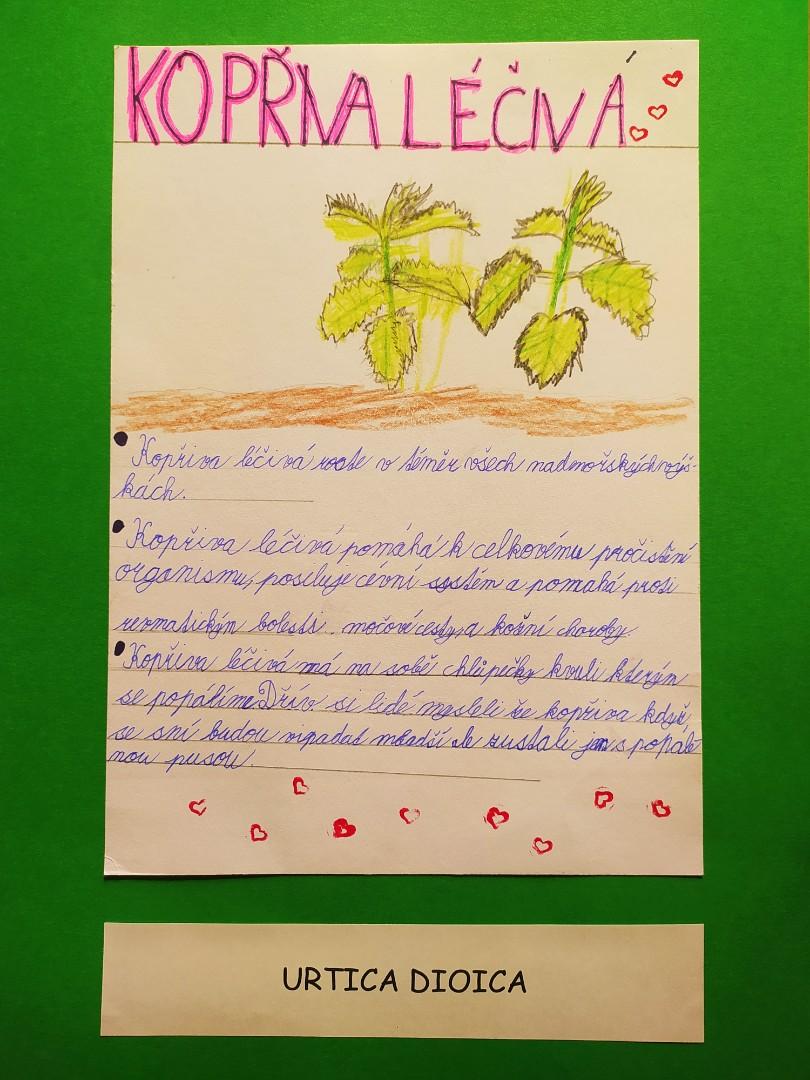 KOPŘIVA LÉČIVÁ
Kopřiva léčivá roste v téměr všech nadmořských výš-
kách.
Kopřiva léčivá pomáhá k celkovému pročistění
organismu, posiluje cévní systém a pomahá proti
revmatickým bolesti. močové cesty, a kožní choroby.
Kopřiva léčivá má na sobě chlúpečky kvuli kterým
se popálíme Dřív si lidé mysleli že kopřiva když
se sní budou vipadat mladší ale zustali jen s popále
nou pusou.
URTICA DIOICA